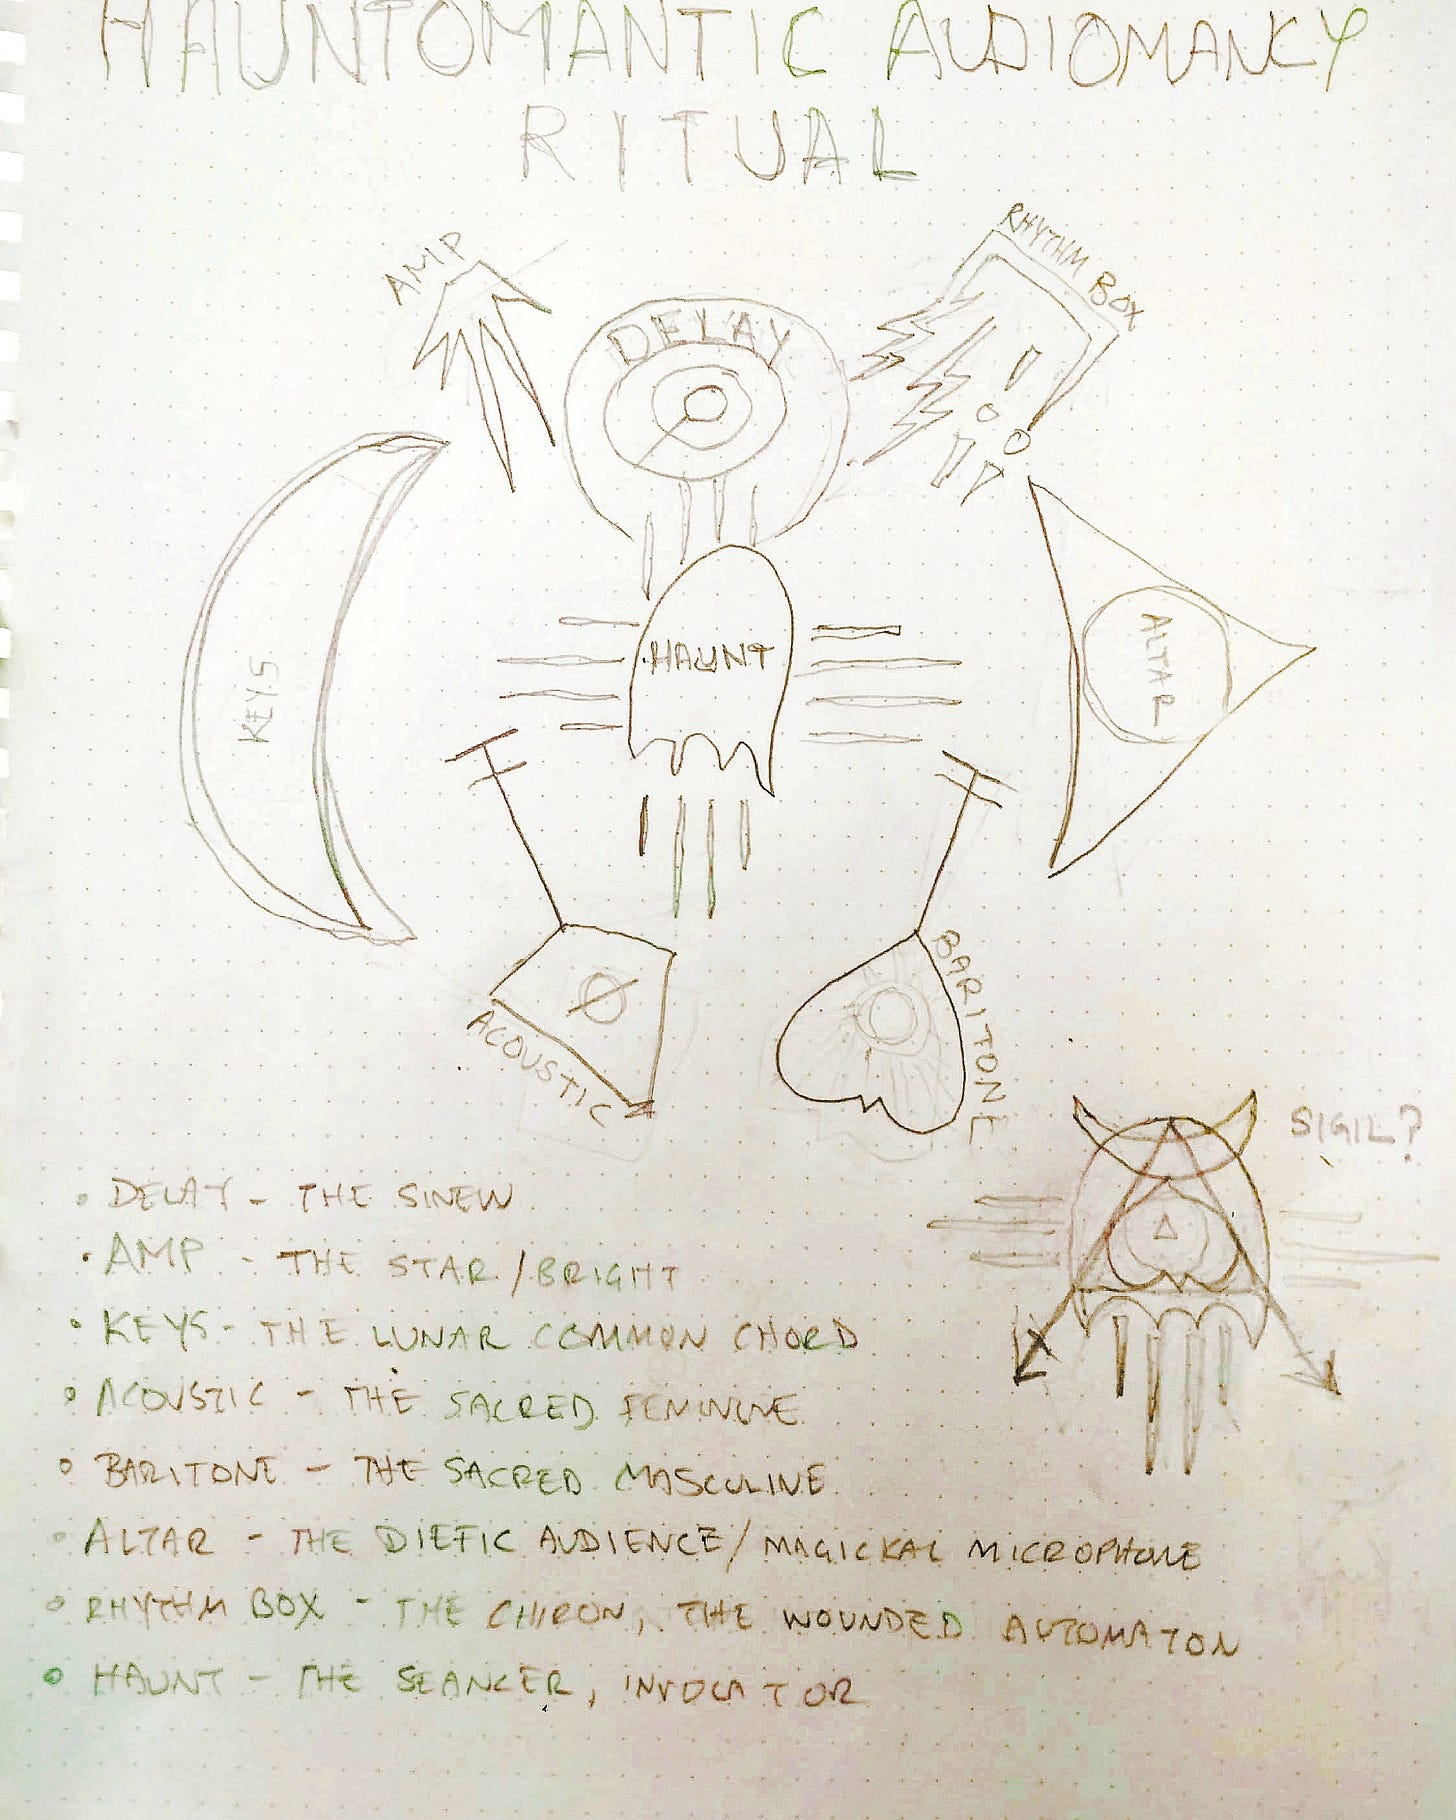 HAUNTOMANTIC AUDIOMANCY
RITUAL
AMP
RHYTHM BOX
DELAY
KEYS
HAUNT
ALTAR
ACOUSTIC
BARITONE
SIGIL?
• DELAY - THE SINEW
• AMP - THE STAR/BRIGHT
• KEYS - THE LUNAR COMMON CHORD
• ACOUSTIC - THE SACRED FEMININE
• BARITONE - THE SACRED MASCULINE
• ALTAR - THE DIEFIC AUDIENCE/MAGICKAL MICROPHONE
• RHYTHM BOX - THE CHIRON, THE WOUNDED AUTOMATON
• HAUNT - THE SEANCER, INVOCATOR